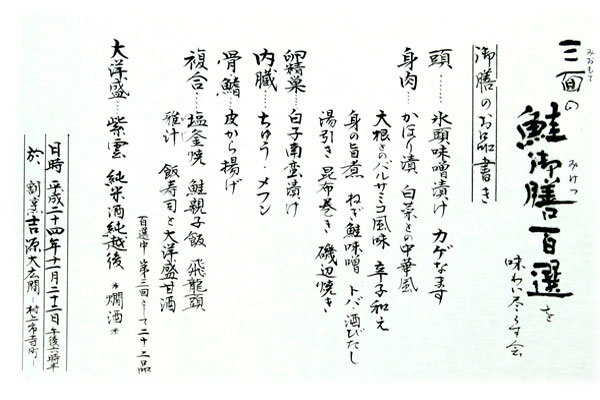 三面の
みおもて
鮭御膳百選を
みけつ
味わい尽くす会
御膳のお品書き
頭……氷頭味噌漬け カゲなます
身肉…かほり漬 白菜との中華風
大根とのバルサミコ風味 辛子和え
身の旨煮 ねぎ鮭味噌 トバ酒びたし
湯引き 昆布巻き 磯辺焼き
卵精巣…白子南蛮漬け
内臓…ちゅう・メフン
骨鰭…皮から揚げ
複合…塩釜焼 鮭親子飯 飛龍頭
雑汁 飯寿司と大洋盛甘酒
百選中 第三回として二十二品
大洋盛…紫雲 純米酒純越後 *燗酒*
日時 平成二十四年十一月二十二日 午後六時半
於 割烹吉源大広間 ―村上市寺町―